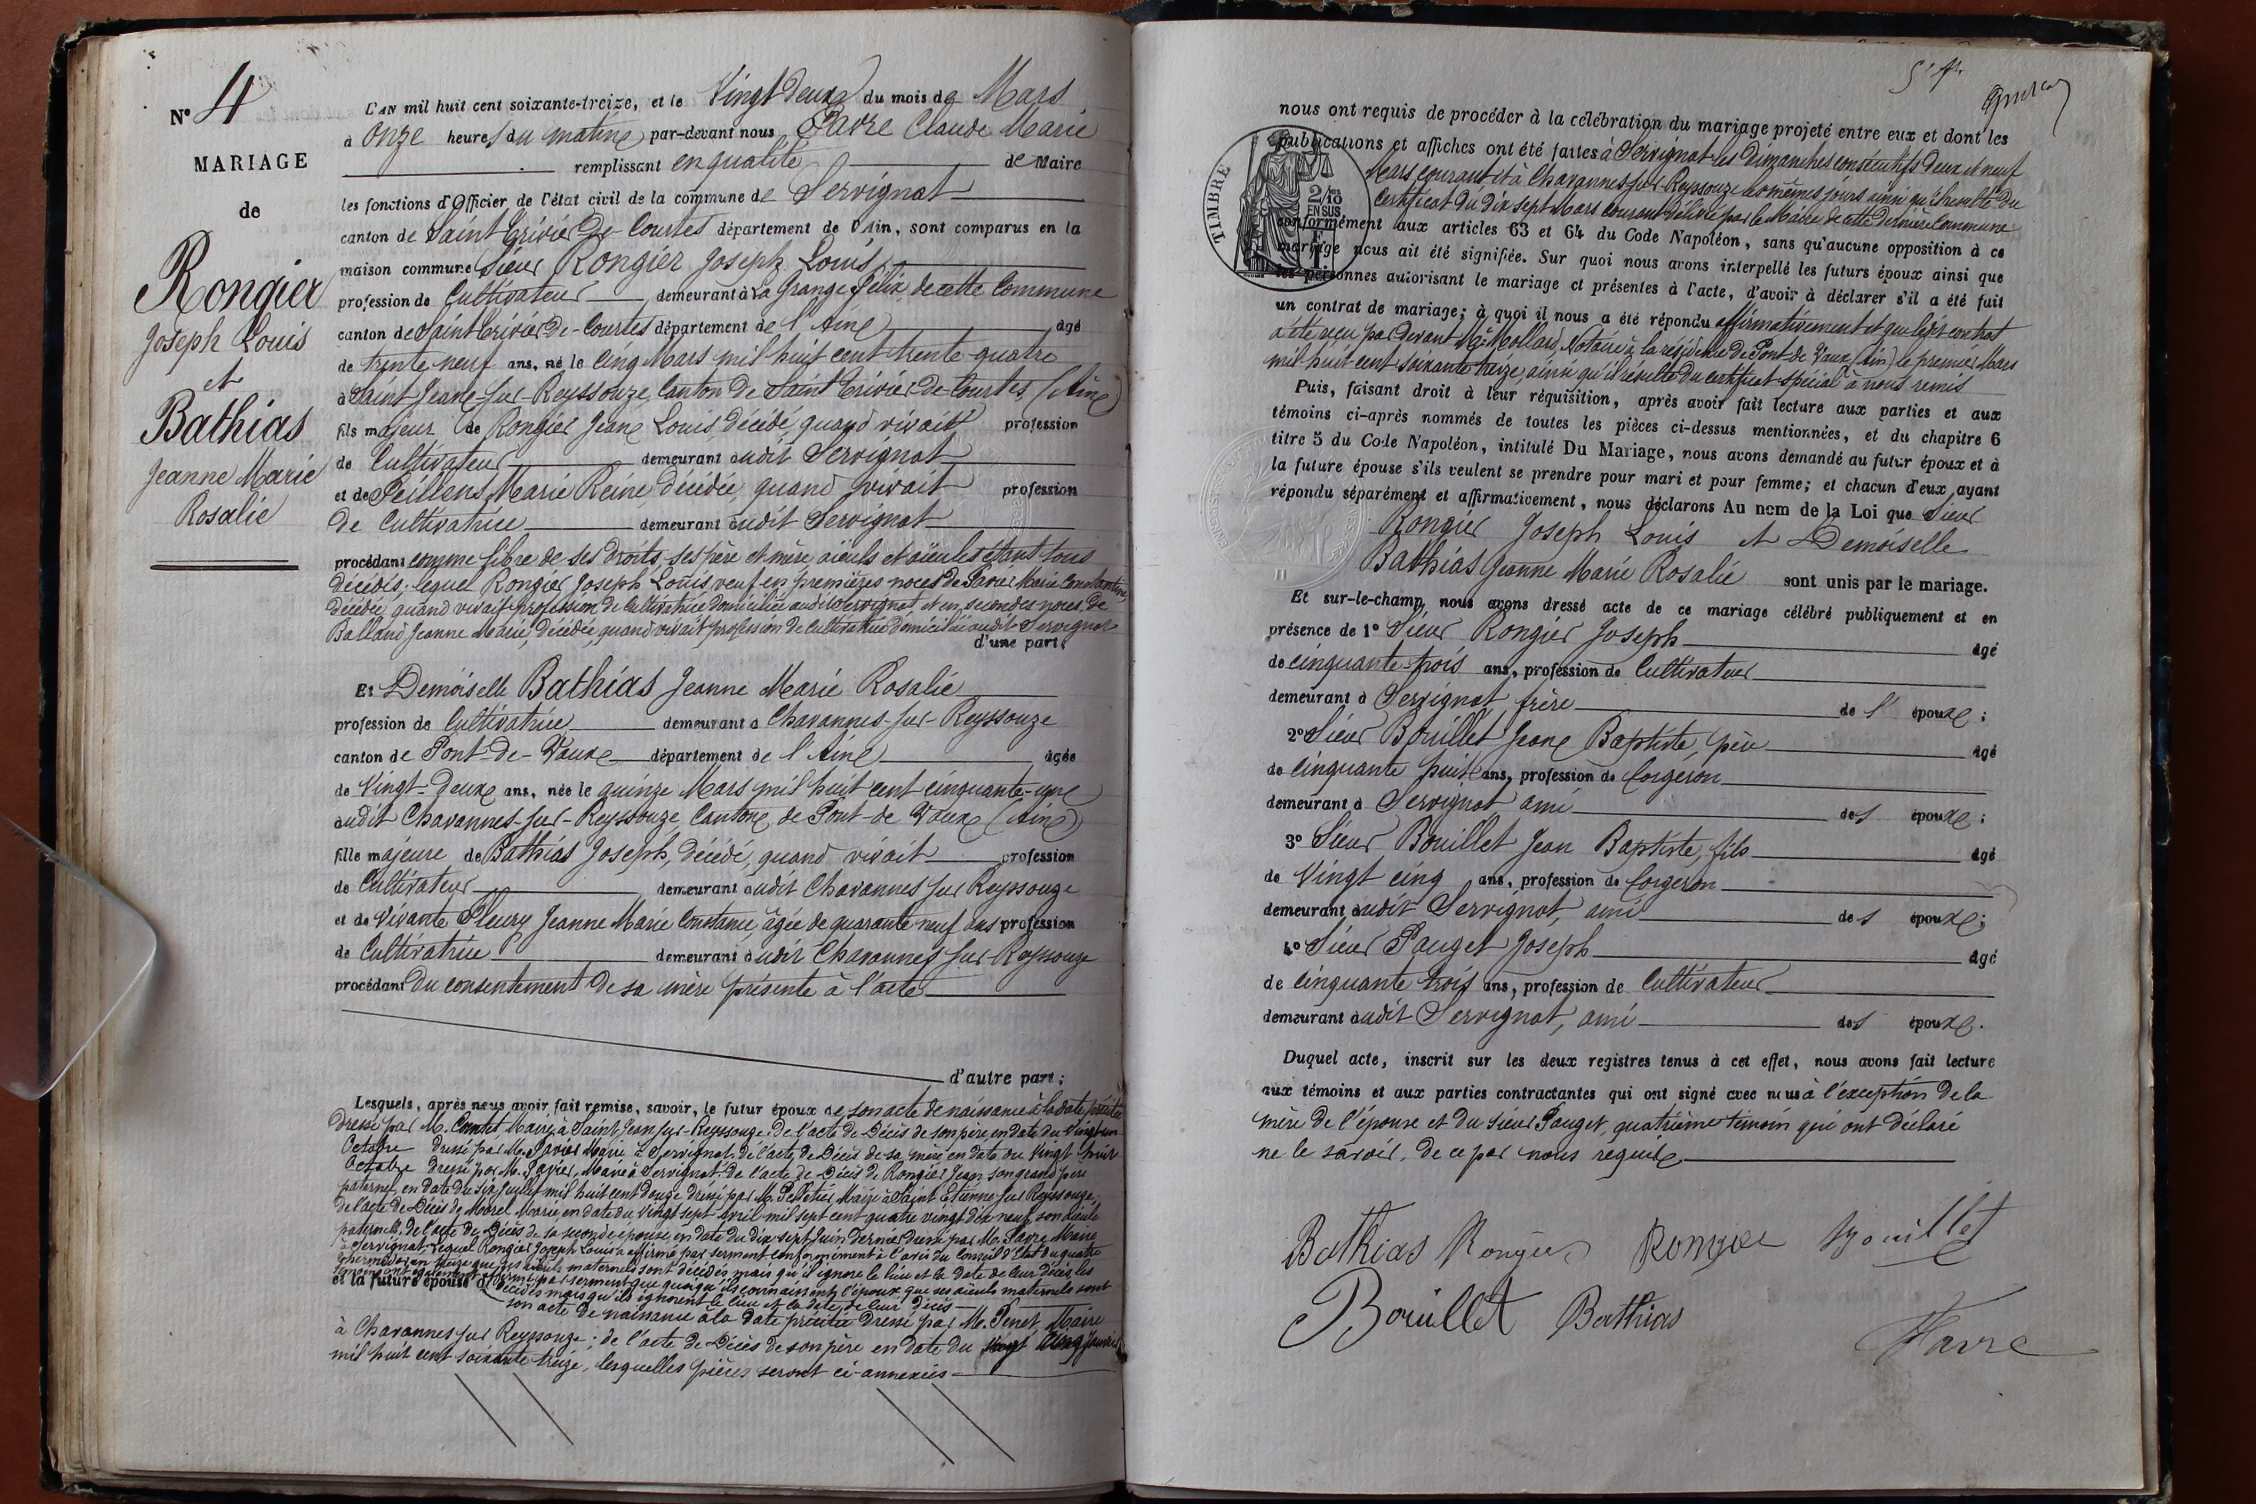 N° 4
MARIAGE
de
Rongier
Joseph Louis
et
Bathias
Jeanne Marie
Rosalie
L'AN mil huit cent soixante-treize, et le Vingt deux du mois de Mars
à Onze heures du matin par-devant nous Favre Claude Marie
remplissant en qualité de Maire
les fonctions d'Officier de l'état civil de la commune de Servignat
canton de Saint Trivier de Courtes département de l'Ain, sont comparus en la
maison commune Sieur Rongier Joseph Louis
profession de Cultivateur demeurant à La Grange Félix de cette Commune
canton de Saint Trivier-De-Courtes département de l'Ain âgé
de trente neuf ans, né le cinq Mars mil huit cent trente quatre
à Saint-Jean-sur-Reyssouze Canton de Saint Trivier-De-Courtes (Ain)
fils majeur de Rongier Jean Louis, décédé, quand vivait profession
de Cultivateur demeurant audit Servignat
et de Peillens Marie Reine décédée, quand vivait profession
de Cultivatrice demeurant audit Servignat
procédant comme libre de ses droits, ses père et mère, aïeuls et aïeules étant tous
décédés; lequel Rongier Joseph Louis, veuf en premières noces de Marie Constantine
décédée, quand vivait profession de Cultivatrice domiciliée audit Servignat et en secondes noces de
Balland Jeanne Marie, décédée, quand vivait profession de cultivatrice domiciliée audit Servignat
d'une part;
Et Demoiselle Bathias Jeanne Marie Rosalie
profession de Cultivatrice demeurant à Chavannes-sur-Reyssouze
canton de Pont-de-Vaux département de l'Ain âgée
de Vingt-Deux ans, née le quinze Mars mil huit cent cinquante-un
audit Chavannes-sur-Reyssouze, Canton de Pont-de-Vaux (Ain)
fille majeure de Bathias Joseph, décédé, quand vivait profession
de Cultivateur demeurant audit Chavannes sur Reyssouze
et de Vivante Fleury Jeanne Marie Constance, âgée de quarante neuf ans profession
de Cultivatrice demeurant audit Chavannes sur Reyssouze
procédant du consentement de sa mère présente à l'acte
d'autre part;
Lesquels, après nous avoir fait remise, savoir, le futur époux de son acte de naissance à la date précitée
dressé par M. Maire à Saint Jean sur-Reyssouze. De l'acte de Décès de son père en date du Vingt un
Octobre dressé par M. Maire à Servignat, de l'acte de Décès de sa mère en date du Vingt huit
Octobre dressé par M. Maire à Servignat, de l'acte de Décès de Rongier Jean son grand père
paternel, en date du six juillet mil huit cent douze dressé par M. Maire à Saint Etienne sur Reyssouze,
de l'acte de Décès de Morel Marie en date du Vingt sept avril mil sept cent quatre vingt dix neuf, son aïeule
paternelle, de l'acte de Décès de sa seconde épouse en date du dix sept juin dernier dressé par M. Favre Maire
à Servignat, lequel Rongier Joseph Louis a affirmé par serment conformément à l'avis du Conseil d'Etat du quatre
thermidor an treize que ses aïeuls maternels sont décédés mais qu'il ignore le lieu et la date de leur décès, les
témoins ont également affirmé par serment que quoiqu'ils connaissent l'époux que ses aïeuls maternels sont
et la future épouse de décédés mais qu'ils ignorent le lieu et la date de leur décès
son acte de naissance à la date précitée dressé par M. Penet Maire
à Chavannes sur Reyssouze; de l'acte de Décès de son père en date du cinq janvier
mil huit cent soixante treize, lesquelles pièces seront ci-annexées
nous ont requis de procéder à la célébration du mariage projeté entre eux et dont les
publications et affiches ont été faites à Servignat les dimanches consécutifs deux et neuf
Mars courant, et à Chavannes sur-Reyssouze les mêmes jours ainsi qu'il résulte du
Certificat du dix sept Mars courant délivré par le Maire de cette dernière Commune
TIMBRE
2/10
EN SUS
conformément aux articles 63 et 64 du Code Napoléon, sans qu'aucune opposition à ce
mariage nous ait été signifiée. Sur quoi nous avons interpellé les futurs époux ainsi que
les personnes autorisant le mariage et présentes à l'acte, d'avoir à déclarer s'il a été fait
un contrat de mariage; à quoi il nous a été répondu affirmativement et que ledit contrat
a été reçu par devant Me Mollard, Notaire à la résidence de Pont-de-Vaux (Ain) le premier Mars
mil huit cent soixante treize, ainsi qu'il résulte du certificat spécial à nous remis
Puis, faisant droit à leur réquisition, après avoir fait lecture aux parties et aux
témoins ci-après nommés de toutes les pièces ci-dessus mentionnées, et du chapitre 6
titre 5 du Code Napoléon, intitulé Du Mariage, nous avons demandé au futur époux et à
la future épouse s'ils veulent se prendre pour mari et pour femme; et chacun d'eux ayant
répondu séparément et affirmativement, nous déclarons Au nom de la Loi que Sieur
Rongier Joseph Louis et Demoiselle
Bathias Jeanne Marie Rosalie sont unis par le mariage.
Et sur-le-champ nous avons dressé acte de ce mariage célébré publiquement et en
présence de 1° Sieur Rongier Joseph âgé
de cinquante-trois ans, profession de Cultivateur
demeurant à Servignat, frère de l'époux;
2° Sieur Bouillet Jean Baptiste, père âgé
de cinquante huit ans, profession de forgeron
demeurant à Servignat ami des époux;
3° Sieur Bouillet Jean Baptiste, fils âgé
de Vingt cinq ans, profession de forgeron
demeurant audit Servignat, ami des époux;
4° Sieur Pauget Joseph âgé
de cinquante trois ans, profession de Cultivateur
demeurant audit Servignat, ami des époux.
Duquel acte, inscrit sur les deux registres tenus à cet effet, nous avons fait lecture
aux témoins et aux parties contractantes qui ont signé avec nous à l'exception de la
mère de l'épouse et du sieur Pauget, quatrième témoin qui ont déclaré
ne le savoir, de ce par nous requis
Bathias Rongier Rongier Bouillet
Bouillet Bathias
Favre